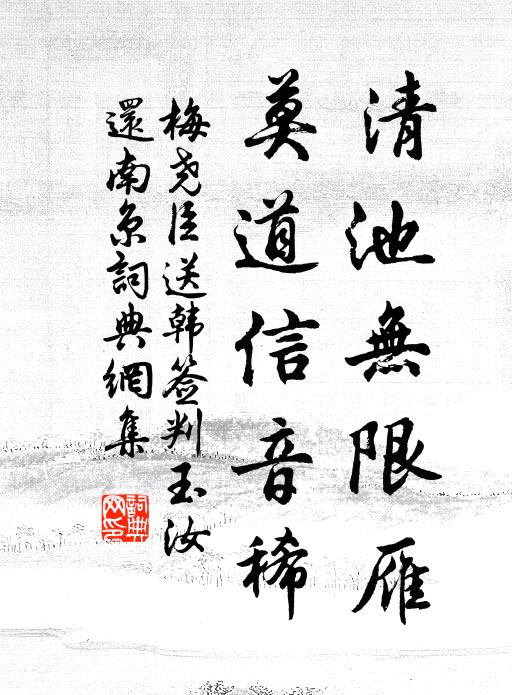 清池無限雁
莫道信音稀
梅堯臣送韩签判玉汝
還南京詞典網集
詞典
网印